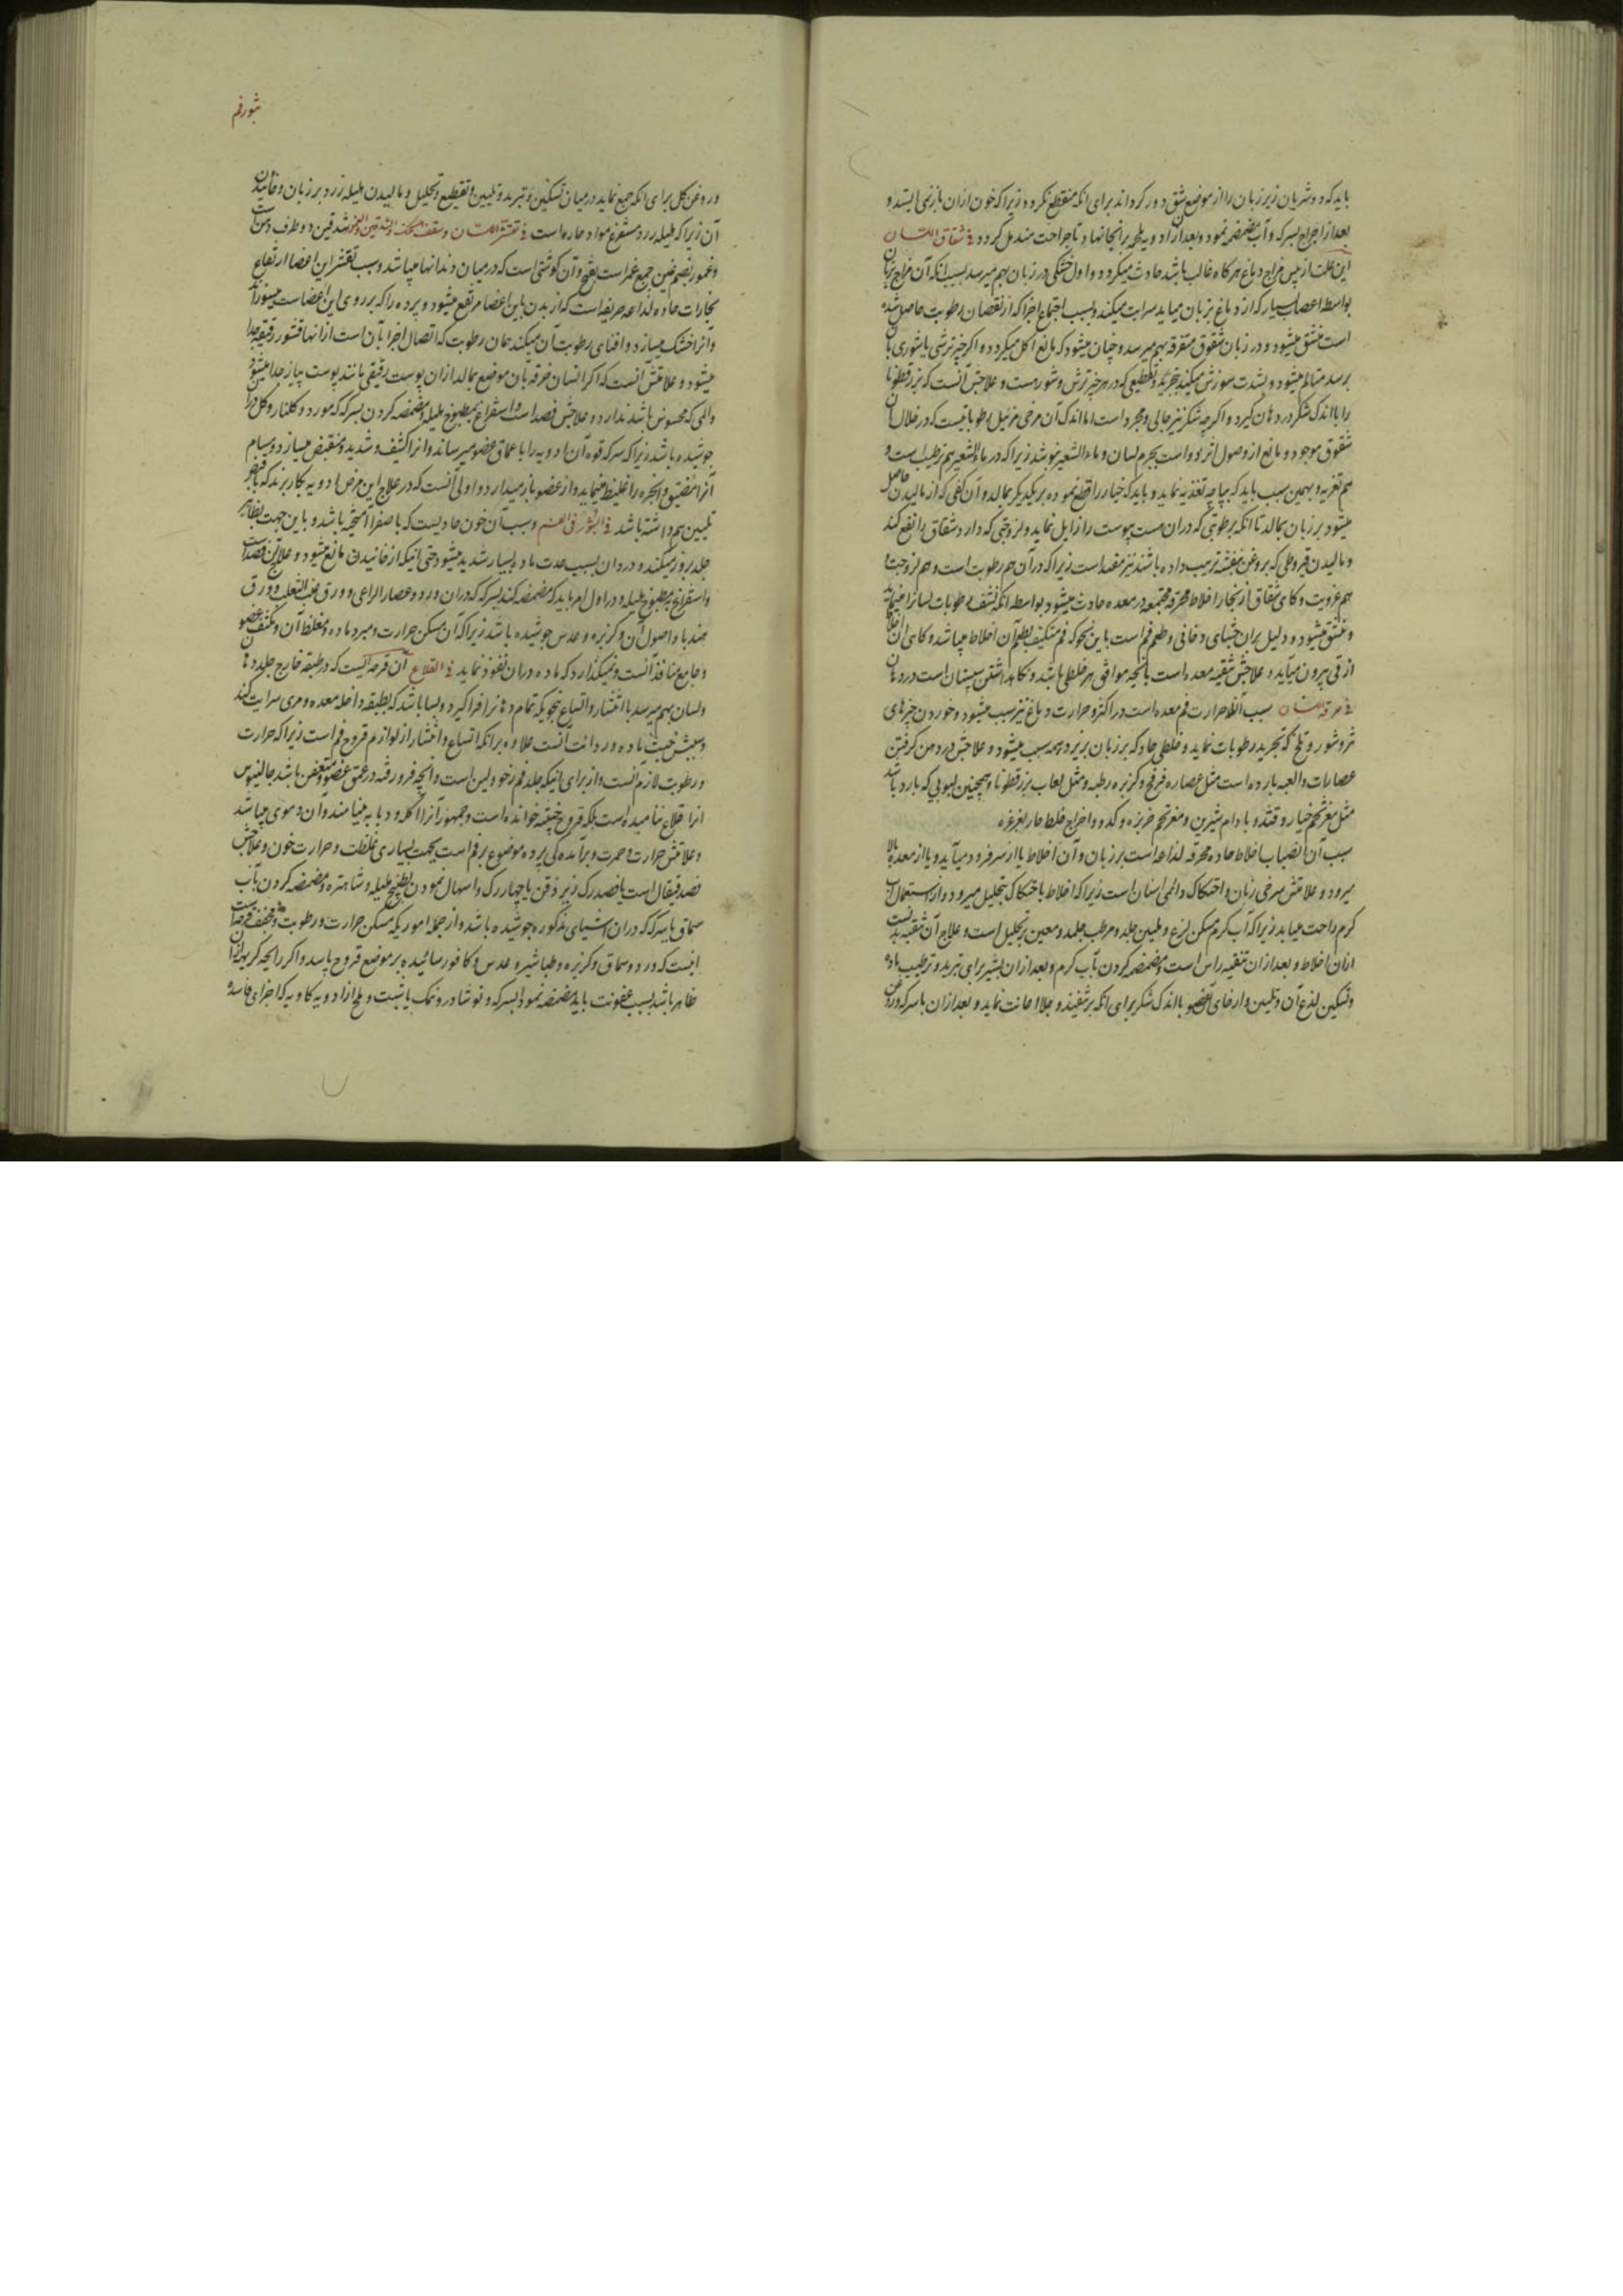 باید که دو شریان زیر زبان را از موضع شق دور کرداند برای انکه منقطع نکردد زیراکه خون ازان باز نمی ایستد و
بعد از اخراج بسرکه و آب مضمضه نمود و بعد ازان ادویه ملحمه برانجا نهاد تا جراحت مندمل کردد فی شقاق اللسان
این علت از یبس مزاج دماغ هرکاه غالب باشد حادث میکردد و اول خشکی در زبان بهم میرسد بسبب انکه آن مزاج بزبان
بواسطه اعصاب بسیار که از دماغ بزبان میاید سرایت میکند و بسبب اجتماع اجزا که از نقصان رطوبت حاصل شده
است منشق میشود و در زبان شقوق متفرقه بهم میرسد و چنان میشود که مانع اکل میکردد و اکر چیز ترشی یا شوری بان
برسد متالم میشود و بشدت سوزش میکند بجهة تقطیعی که در هر چیز ترش و شورست و علاجش آنست که بزرقطونا
را با اندک شکر در دهان کیرد و اکرچه شکر نیز جالی و مجرد است اما اندک آن مرخی مزیل رطوباتیست که در خلال آن
شقوق موجود و مانع از وصول اثر دواست بجرم لسان و ماء الشعیر بنوشد زیراکه در ماء الشعیر هم ترطیب است و
هم تغریه و بهمین سبب باید که بپاچه تغذیه نماید و باید که خیار را قطع نموده بر یکدیکر بمالد و آن کفی که از مالیدن حاصل
میشود بر زبان بمالد تا انکه برطوبتی که دران هست یبوست را زایل نماید و لزوجتی که دارد شقاق را نفع کند
و مالیدن قیروطی که بروغن بنفشه ترتیب داده باشند نیز مفید است زیراکه در آن هم رطوبت است و هم لزوجت و
هم غرویت و کاهی شقاق از بخار اخلاط محرقه مجتمعه در معده حادث میشود بواسطه انکه نشف رطوبات لسان را مینماید
و منشق میشود و دلیل بران جشای دخانی و طعم فم است باین نحو که فم متکیف بطعم آن اخلاط میباشد و کاهی آن اخلاط
از قی بیرون میآید و علاجش تنقیه معده است بآنچه موافق هر خلطی باشد و نکاهداشتن سپستان است در دهان
فی حرقة اللسان سبب آن حرارت فم معده است در اکثر و حرارت دماغ نیز سبب میشود و خوردن چیزهای
تیز و شور و تلخ که تجرید رطوبات نماید و خلطی حاد که بر زبان بریزد همه سبب میشود و علاجش در دهن کرفتن
عصارات و العبه بارده است مثل عصاره فرفخ و کزبره رطبه و مثل لعاب بزرقطونا و همچنین لبوبی که بارد باشد
مثل مغز تخم خیار و قثد و بادام شیرین و مغز تخم خربزه و کدو و اخراج خلط حار بغرغره
سبب آن انصباب اخلاط حاده محرقه لذاعه است بر زبان و آن اخلاط یا از سر فرود میآید و یا از معده بالا
میرود و علامتش سرخی زبان و احتکاک دائمی لسان است زیراکه اخلاط باحتکاک بتحلیل میرود و از استعمال آب
کرم راحت میابد زیراکه آب کرم مسکن لزع و ملین جلد و مرطب جلد و معین بر تحلیل است و علاج آن تنقیه بدنست
ازان اخلاط و بعد ازان تنقیه راس است و مضمضه کردن بآب کرم و بعد ازان بشیر برای تبرید و ترطیب ماده
و تسکین لذع آن و تلیین و ارخای آن عضو با اندک شکر برای انکه بر تنفیذ و جلا اعانت نماید و بعد ازان با سرکه و روغن ورد
بثور فم
و روغن کل برای انکه جمع نماید در میان تسکین و تبرید و تلیین و تقطیع و تحلیل و مالیدن هلیله زرد بر زبان و خائیدن
آن زیراکه هلیله زرد مستفرغ مواد حاره است فی تقشر اللسان و سقف الحنک و الشدقین و العمور شدقین دو طرف دهن است
و عمور بضم عین جمع عمر است بفتح و آن کوشتی است که در میان دندانها میباشد و سبب تقشر این اعضا ارتفاع
بخارات حاده لذاعه حریفه است که از بدن باین اعضا مرتفع میشود و پرده را که بر روی این اعضاست میسوزاند
و آنرا خشک میسازد و افنای رطوبت آن میکند همان رطوبت که اتصال اجزا بآن است ازانها قشور رقیقه جدا
میشود و علامتش آنست که اکر انسان خرقه بان موضع بمالد ازان پوست رقیقی مانند پوست پیاز جدا میشود
و المی که محسوس باشد ندارد و علاجش فصد است و استفراغ بمطبوخ هلیله و مضمضه کردن بسرکه که مورد و کلنار و کل دران
جوشیده باشد زیراکه سرکه قوه آن ادویه را باعماق عضو میرساند و انرا کثیف و شدید و منقبض میسازد و مسام
آنرا مضیق و ابخره را غلیظ مینماید و از عضو باز میدارد و اولی آنست که در علاج این مرض ادویه بکار برند که با قبض
تلیین هم داشته باشد فی البثور فی الفم و سبب آن خون حادیست که با صفرا آمیخته باشد و باین جهت بظاهر
جلد بروز میکند و درد آن بسبب حدت ماده بسیار شدید میشود حتی اینکه از خائیدن مانع میشود و علاج آن فصد است
و استفراغ بمطبوخ هلیله و در اول امر باید که مضمضه کند بسرکه که دران ورد و عصا الراعی و ورق عنب الثعلب و ورق
هندبا و اصول آن و کزبره و عدس جوشیده باشد زیراکه آن مسکن حرارت و مبرد ماده و مغلظ آن و مکثف عضو
و جامع منافذ آنست و نمیکذارد که ماده دران نفوذ نماید فی القلاع آن قرحه ایست که در طبقه خارج جلد دهان
و لسان بهم میرسد با انتشار و اتساع بنحویکه تمام دهانرا فرا کیرد و بسا باشد که بطبقه داخله معده و مری سرایت کند
و سببش خبث ماده و ردائت آنست علاوه برانکه اتساع و انتشار از لوازم قروح فم است زیراکه حرارت
و رطوبت لازم آنست و از برای اینکه جلد فم رخو و لین است و آنچه فرو رفته در عمق عضو و متعفن باشد جالینوس
انرا قلاع ننامیده است بلکه قروح خبیثه خوانده است و جمهور آنرا آکله و دبابه مینامند و آن دموی میباشد
و علامتش حرارت و حمرت و برآمدهکی پرده موضوع بر فم است بجهت بسیاری غلظت و حرارت خون و علاجش
فصد قیفال است یا فصد رک زیر ذقن یا چهار رک و اسهال نمودن بطبیخ هلیله و شاهتره و مضمضه کردن بآب
سماق یا بسرکه که دران اشیای مذکوره جوشیده باشد و از جمله اموریکه مسکن حرارت و رطوبت و مجفف قرحه است
اینست که ورد و سماق و کزبره و طباشیر و عدس و کافور سائیده بر موضع قروح پاشد و اکر رائحه کریهه ازان
ظاهر باشد بسبب عفونت باید مضمضه نمود بسرکه و نوشادر و نمک یا شبت و ملح از ادویه کاویه که اجزای فاسده